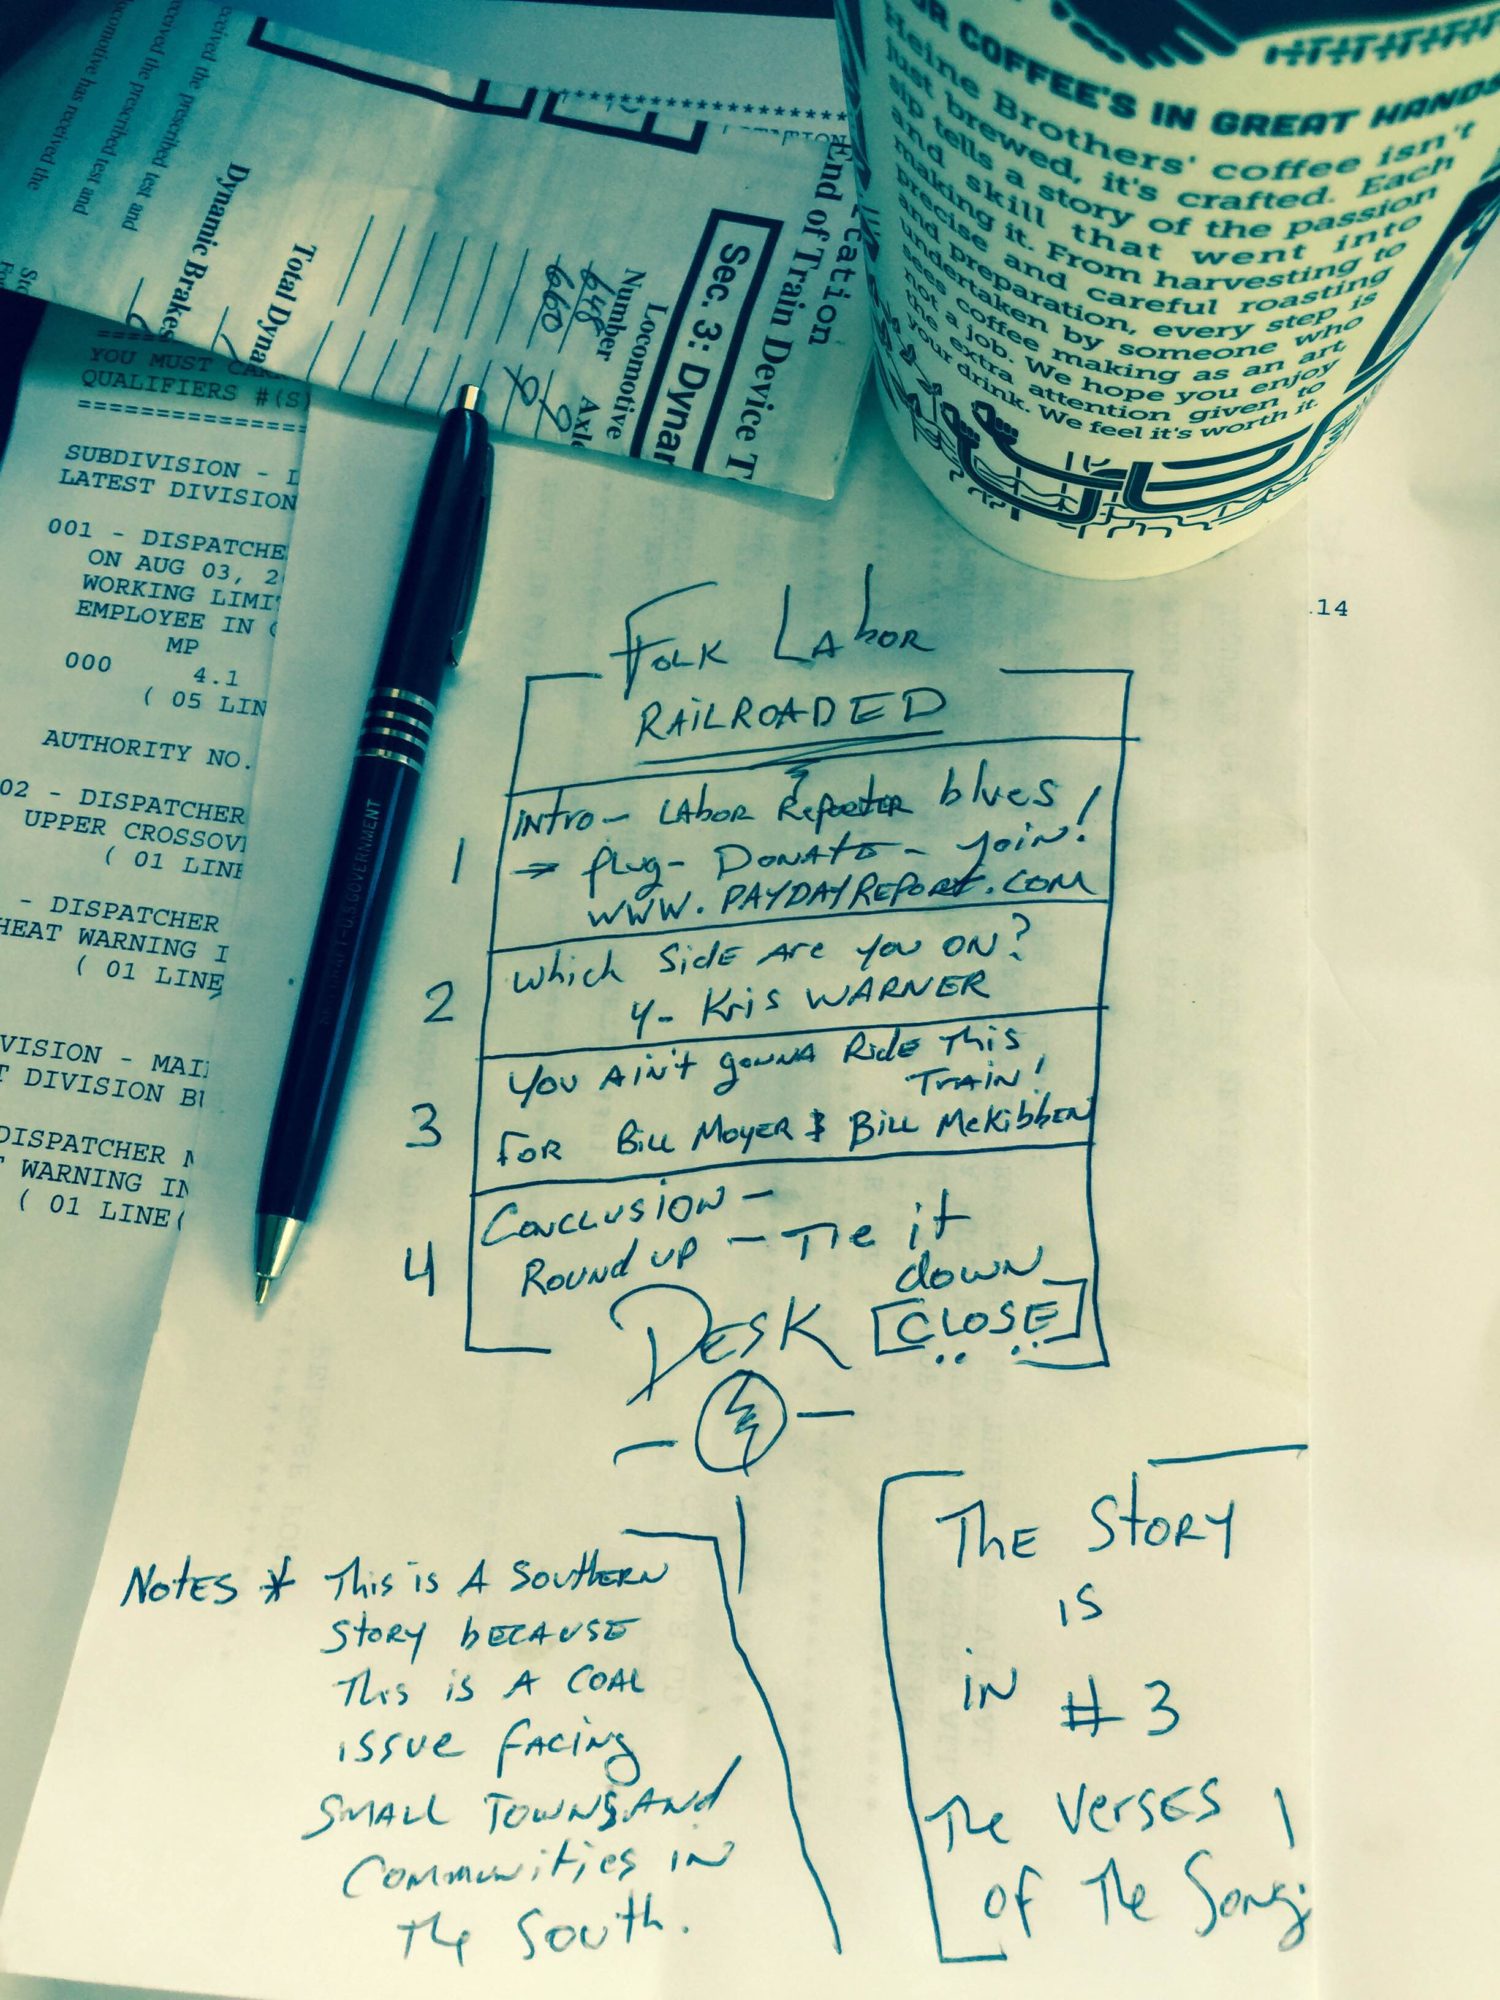 eceived the
received the prescribed test and
received the prescribed test and
locomotive has received the
Dynamic Brakes
Total Dyna
Number
Locomotive
Axle
648 9
660 9
Sec. 3: Dynar
Device T
End of Train
cation
TATION
OR COFFEE'S IN GREAT HANDS
Heine Brothers' coffee isn't
just brewed, it's crafted. Each
sip tells a story of the passion
and skill that went into
making it. From harvesting to
precise and careful roasting
and preparation, every step is
undertaken by someone who
sees coffee making as an art
not a job. We hope you enjoy
the extra attention given to
your drink. We feel it's worth it.
YOU MUST CAR
QUALIFIERS #(S)
==============
SUBDIVISION - L
LATEST DIVISION
001 - DISPATCHE
ON AUG 03, 2
WORKING LIMI
EMPLOYEE IN
MP
000 4.1
( 05 LIN
AUTHORITY NO.
02 - DISPATCHER
UPPER CROSSOV
( 01 LINE
- DISPATCHER
HEAT WARNING I
( 01 LINE
VISION - MAI
T DIVISION BU
DISPATCHER N
T WARNING IN
( 01 LINE(
.14
U.S. GOVERNMENT
FOLK LABOR
RAILROADED
1 INTRO - LABOR REPORTER blues!
→ Plug - DONATE - JOIN!
WWW.PAYDAYREPORT.COM
2 Which SIDE Are You ON?
4- Kris WARNER
3 You AIN'T gonna RIDE THIS
TRAIN!
FOR Bill MOYER & Bill McKibben
4 CONCLUSION -
ROUND UP - TIE it
down
DESK [CLOSE]
NOTES * This is A SOUTHERN
STORY bECAUSE
This is A COAL
issue facing
SMALL TOWNS AND
COMMUNITIES IN
The South.
THE STORY
is
in #3
The VERSES
of The Song